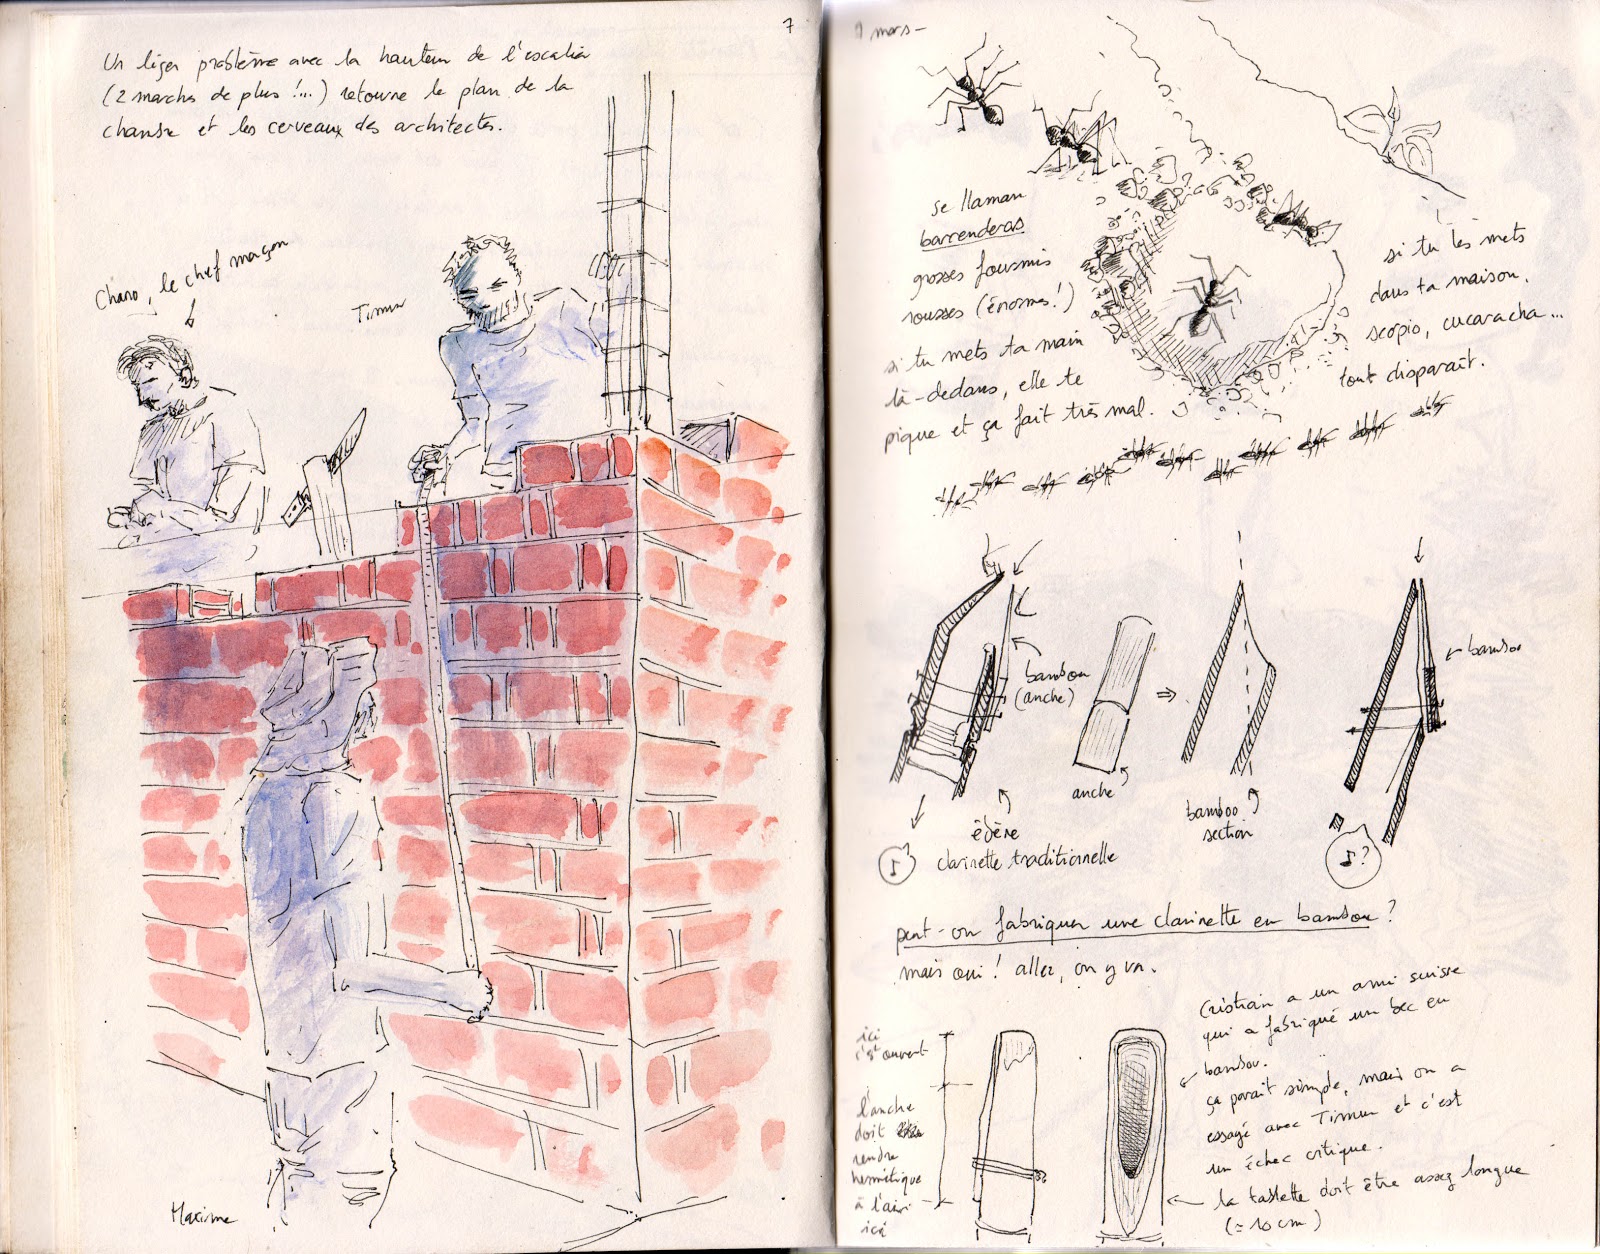 7
Un léger problème avec la hauteur de l'escalier
(2 marches de plus !...) retourne le plan de la
chambre et les cerveaux des architectes.
Chano, le chef maçon
Timur
Maxime
7 mars -
se llaman
barrenderas
grosses fourmis
rousses (énormes!)
si tu mets ta main
là-dedans, elle te
pique et ça fait très mal.
si tu les mets
dans ta maison,
scorpio, cucaracha...
tout disparaît.
bambou
(anche)
anche
bamboo
section
bambou
♪
♪?
ébène
clarinette traditionnelle
peut-on fabriquer une clarinette en bambou ?
mais oui ! allez, on y va.
ici
c'est ouvert
l'anche
doit
rendre
hermétique
à l'air
ici
Cristian a un ami suisse
qui a fabriqué un bec en
bambou.
ça parait simple, mais on a
essayé avec Timur et c'est
un échec critique.
la tablette doit être assez longue
(≃ 10 cm)